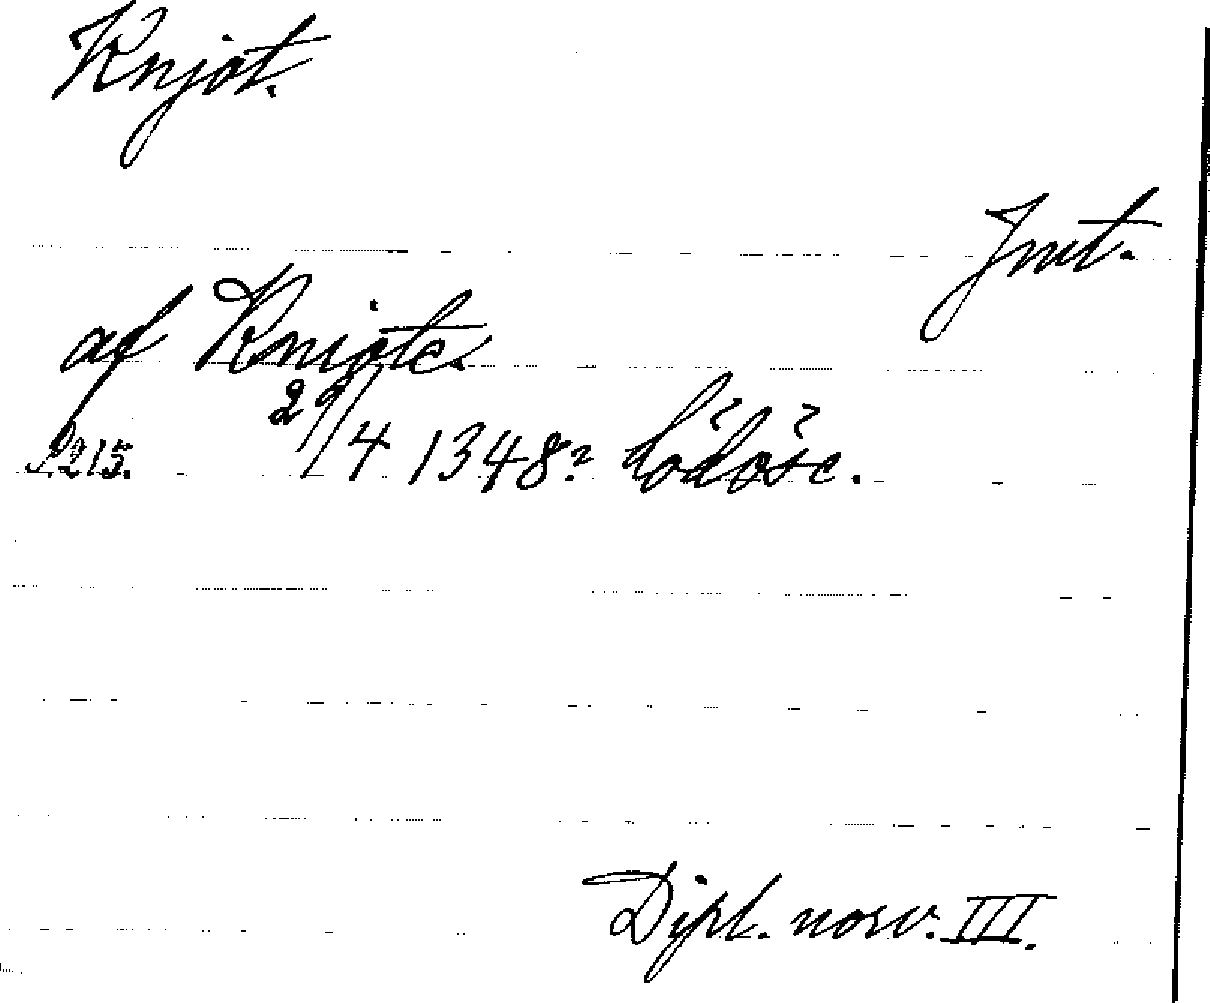 Knjót.
Jmt.
af Kniote.
S. 215. 29/4 1348? Lödöse.
Dipl. norv. III.